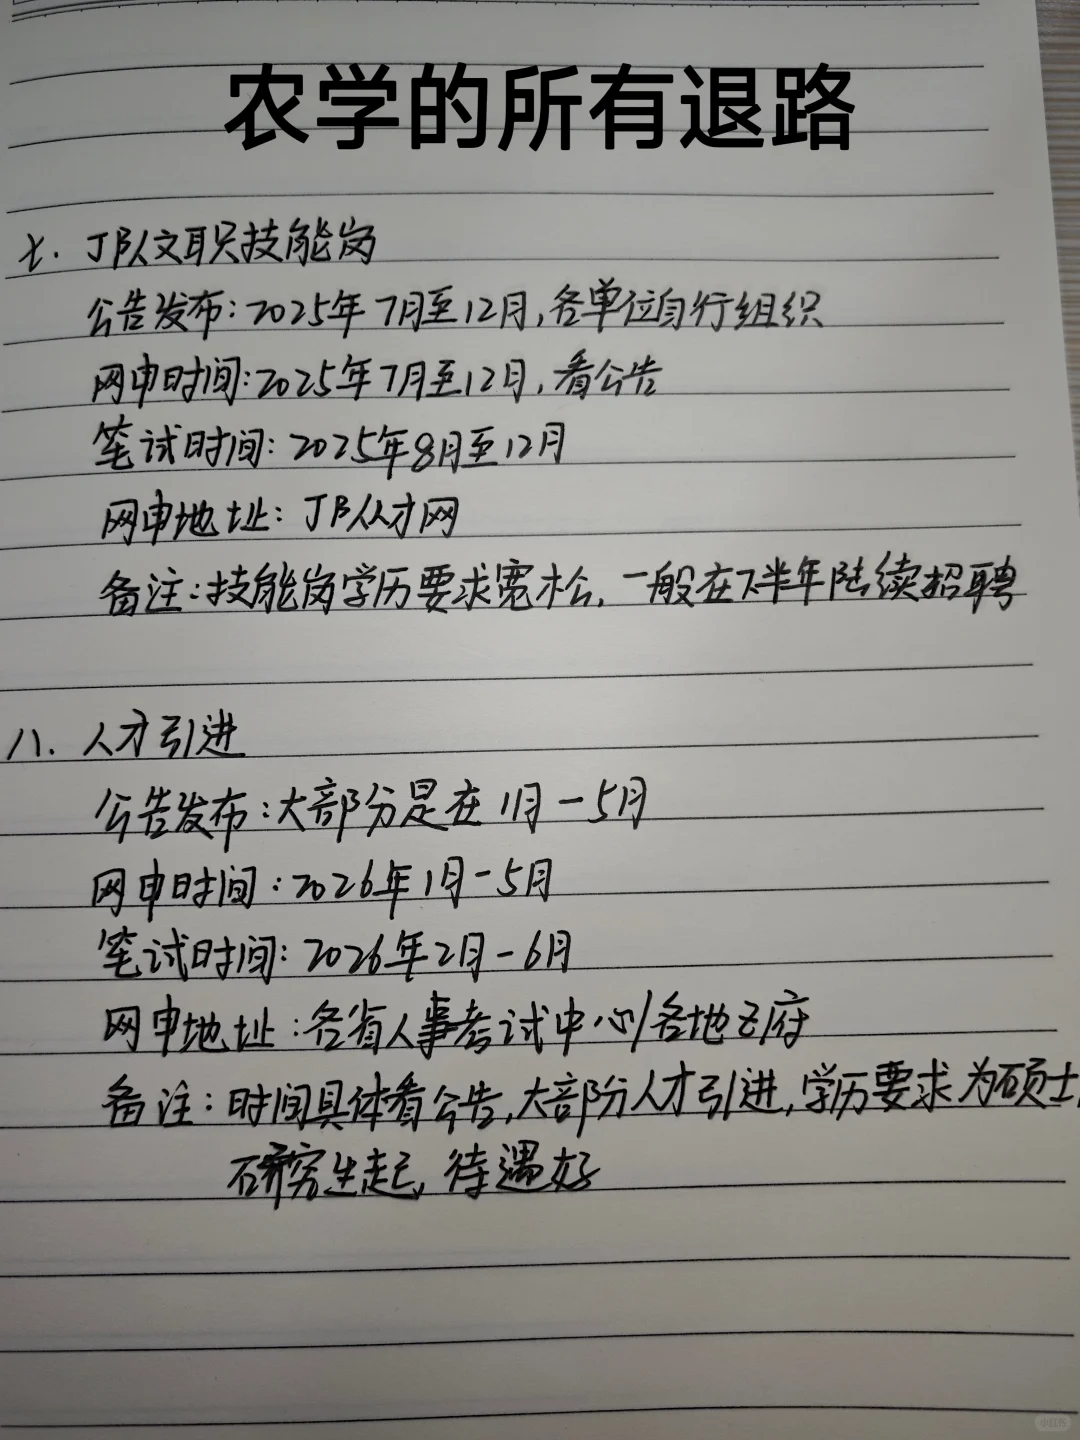 农学的所有退路
七. JB队文职技能岗
公告发布:2025年7月至12月,各单位自行组织
网申时间:2025年7月至12月,看公告
笔试时间:2025年8月至12月
网申地址:JB人才网
备注:技能岗学历要求宽松,一般在下半年陆续招聘
八. 人才引进
公告发布:大部分是在1月-5月
网申时间:2026年1月-5月
笔试时间:2026年2月-6月
网申地址:各省人事考试中心/各地Z府
备注:时间具体看公告,大部分人才引进,学历要求为硕士
研究生起,待遇好
小红书